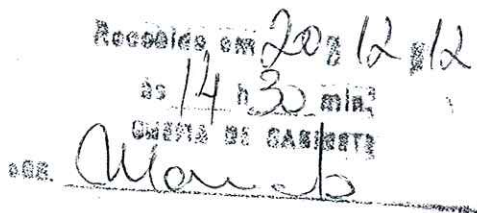 Recebido em 20/12/12
às 14 h 30 min.
CHEFIA DE GABINETE